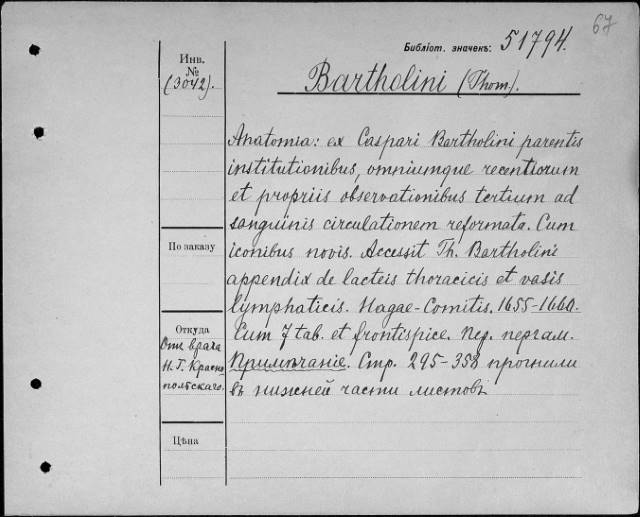 67
Библіот. значекъ: 51794.
Инв.
№
(3042).
Bartholini (Thom).
Anatomia: ex Caspari Bartholini parentis
institutionibus, omniumque recentiorum
et propriis observationibus tertium ad
sanguinis circulationem reformata. Cum
iconibus novis. Accessit Th. Bartholini
appendix de lacteis thoracicis et vasis
lymphaticis. Hagae-Comitis. 1655-1660.
Cum 7 tab. et frontispice. Пер. пергам.
Примѣчаніе. Стр. 295-358 прогнили
въ нижней части листовъ
По заказу
Откуда
Отъ врача
Н. Г. Красно
польскаго.
Цѣна